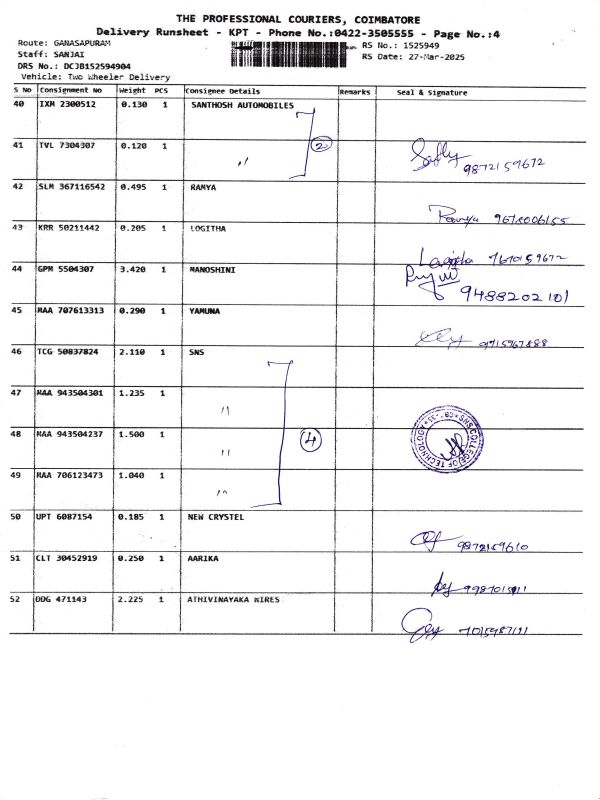 THE PROFESSIONAL COURIERS, COIMBATORE
Delivery Runsheet - KPT - Phone No.:0422-3505555 - Page No.:4
Route: GANASAPURAM
RS No.: 1525949
Staff: SANJAI
RS Date: 27-Mar-2025
DRS No.: DCJB152594904
Vehicle: Two Wheeler Delivery
S No Consignment No Weight PCS Consignee Details Remarks Seal & Signature
40 IXM 2300512 0.130 1 SANTHOSH AUTOMOBILES
41 TVL 7304307 0.120 1 〃 2 9872159672
42 SLM 367116542 0.495 1 RAMYA
Ramya
43 KRR 50211442 0.205 1 LOGITHA
44 GPM 5504307 3.420 1 MANOSHINI
9488202101
45 MAA 707613313 0.290 1 YAMUNA
46 TCG 50837824 2.110 1 SNS
47 MAA 943504301 1.235 1 〃
48 MAA 943504237 1.500 1 〃 4 SNS COLLEGE OF TECHNOLOGY
49 MAA 706123473 1.040 1 〃
50 UPT 6087154 0.185 1 NEW CRYSTEL
9872159610
51 CLT 30452919 0.250 1 AARIKA
52 DDG 471143 2.225 1 ATHIVINAYAKA WIRES